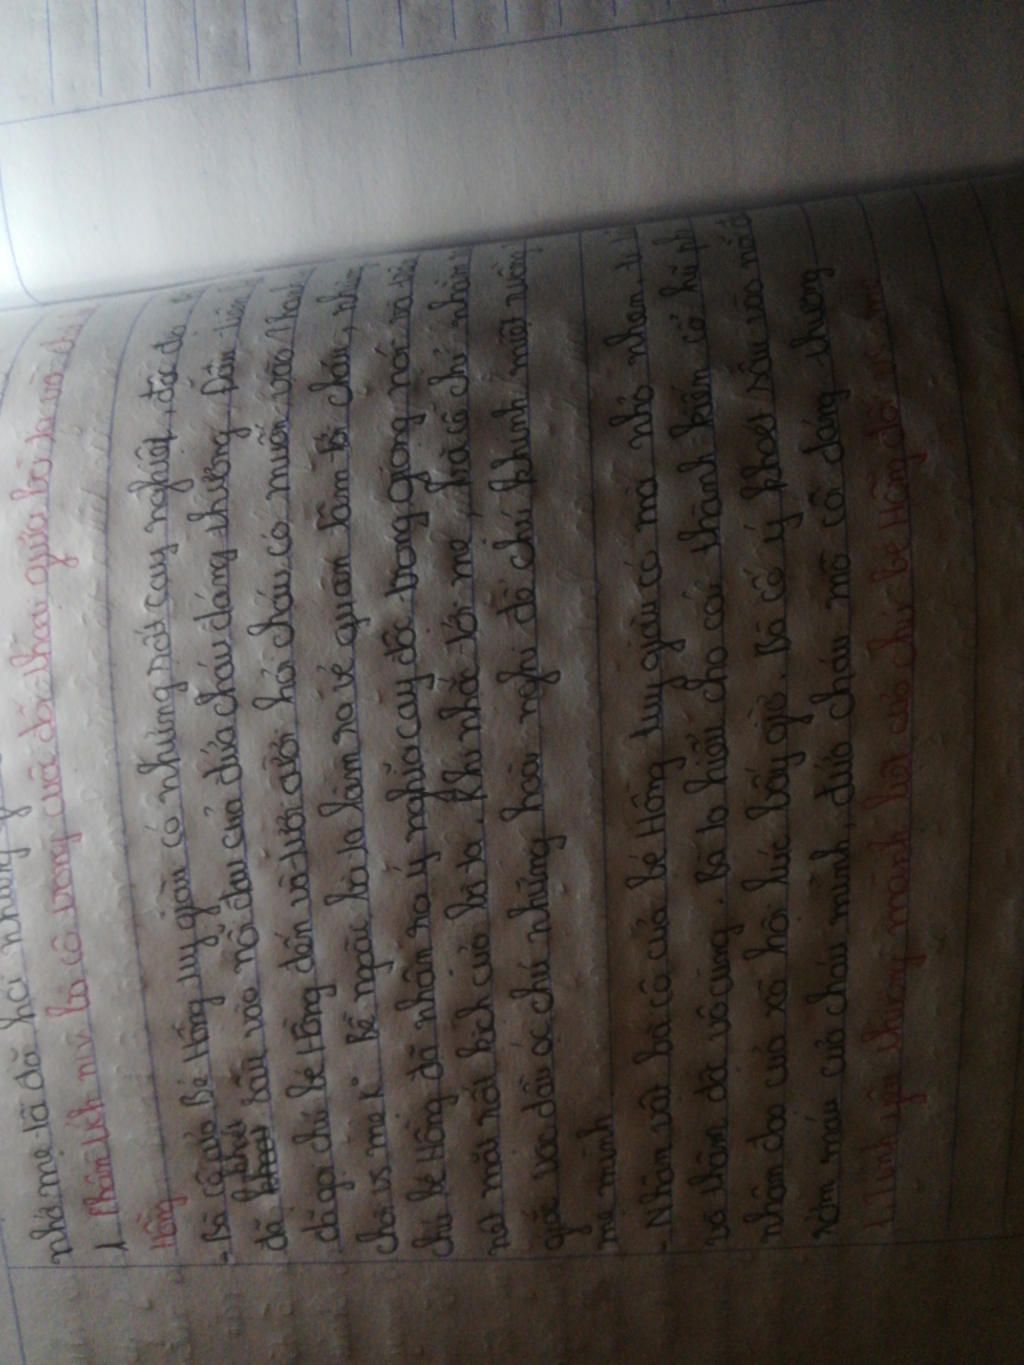 nhà mẹ tã đã hỏi những
1. Phân tích nv bà cô trong cuộc đối thoại giữa bà ta và chú bé
Hồng
- Bà cô của Bé Hồng tuy giàu có nhưng rất cay nghiệt, độc ác
đã khoét sâu vào nỗi đau của đứa cháu đáng thương. Đầu tiên
đã gọi chú bé Hồng đến và tươi cười hỏi cháu có muốn vào Thanh
chơi vs mẹ k. Bề ngoài bà ta làm ra vẻ quan tâm tới cháu, nhưng
chú bé Hồng đã nhận ra ý nghĩa cay độc trong giọng nói và trên
nét mặt rất kịch của bà ta. Khi nhắc tới mẹ bà cô chỉ nhằm
gieo vào đầu óc chú những hoài nghi để chú khinh miệt ruồng
mẹ mình
- Nhân vật bà cô của bé Hồng tuy giàu có mà nhỏ nhen, ti
và thâm độc vô cùng. Bà ta hiện cho cái thành kiến cổ hủ ph
nhân đạo của xã hội lúc bấy giờ. Bà cố ý khoét sâu vào nỗi đ
rớm máu của cháu mình, đứa cháu mồ côi đáng thương
1. Tình yêu thương mãnh liệt của chú bé Hồng đối vs mẹ